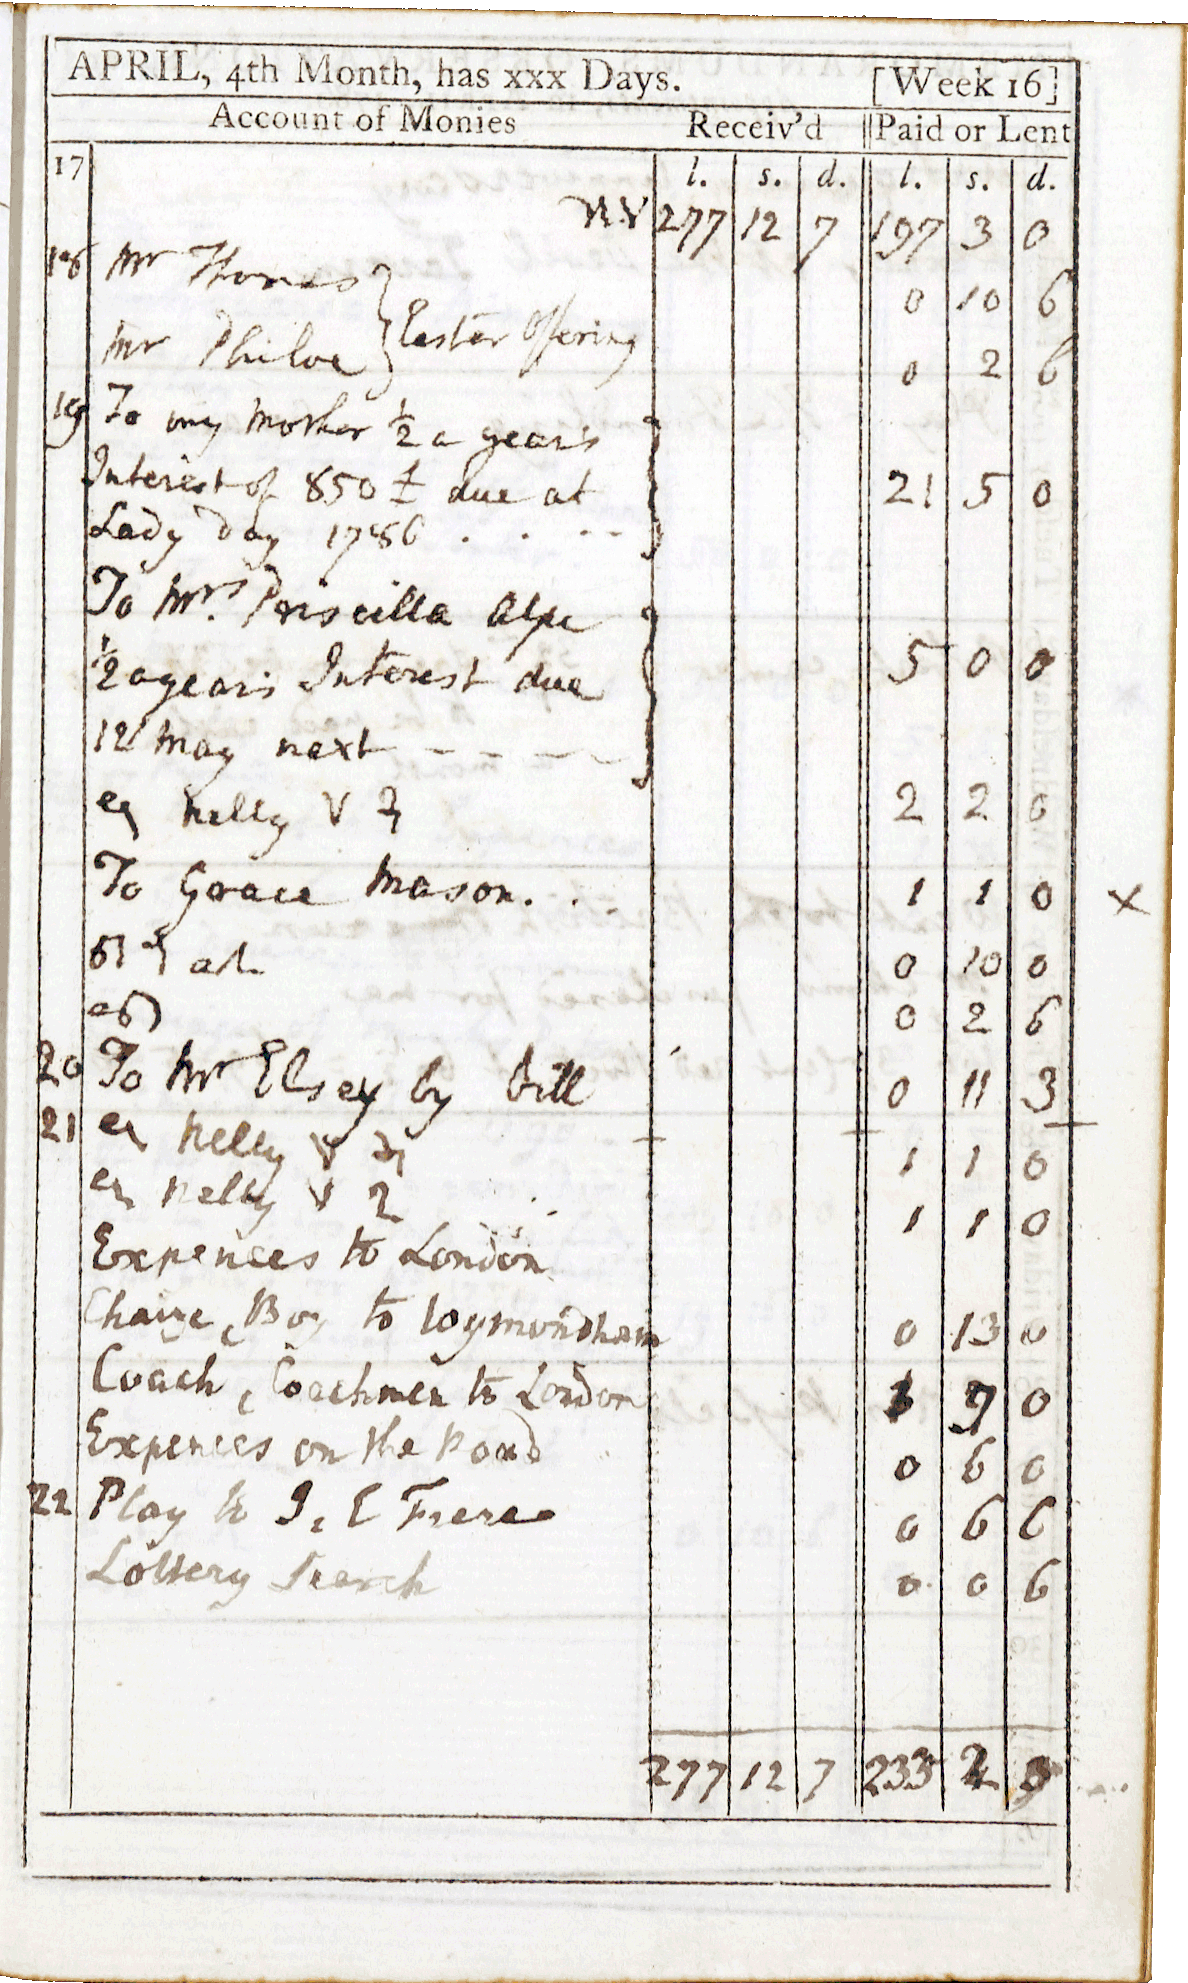 APRIL, 4th Month, has xxx Days. [Week 16]
Account of Monies Receiv'd Paid or Lent
17 l. s. d. l. s. d.
277 12 7 197 3 0
18 Mr Thomas 0 10 6
Easter Offering
Mr Philoe 0 2 6
19 To my Mother ½ a years
Interest of 850 £ due at 21 5 0
Lady Day 1786 . . - -
To Mrs. Priscilla Alpe
½ a years Interest due 5 0 0
12 May next - - - -
Nelly 2 2 0
To Grace Mason. . 1 1 0 x
0 10 0
0 2 6
20 To Mr Elsey by bill 0 11 3
21 Nelly 1 1 0
Nelly 1 1 0
Expences to London
Chaise, Boy to Wymondham 0 13 0
Coach, Coachmen to London 9 0
Expences on the Road 0 6 0
22 Play to J, E Frere 0 6 6
Lottery 0 0 6
277 12 7 233